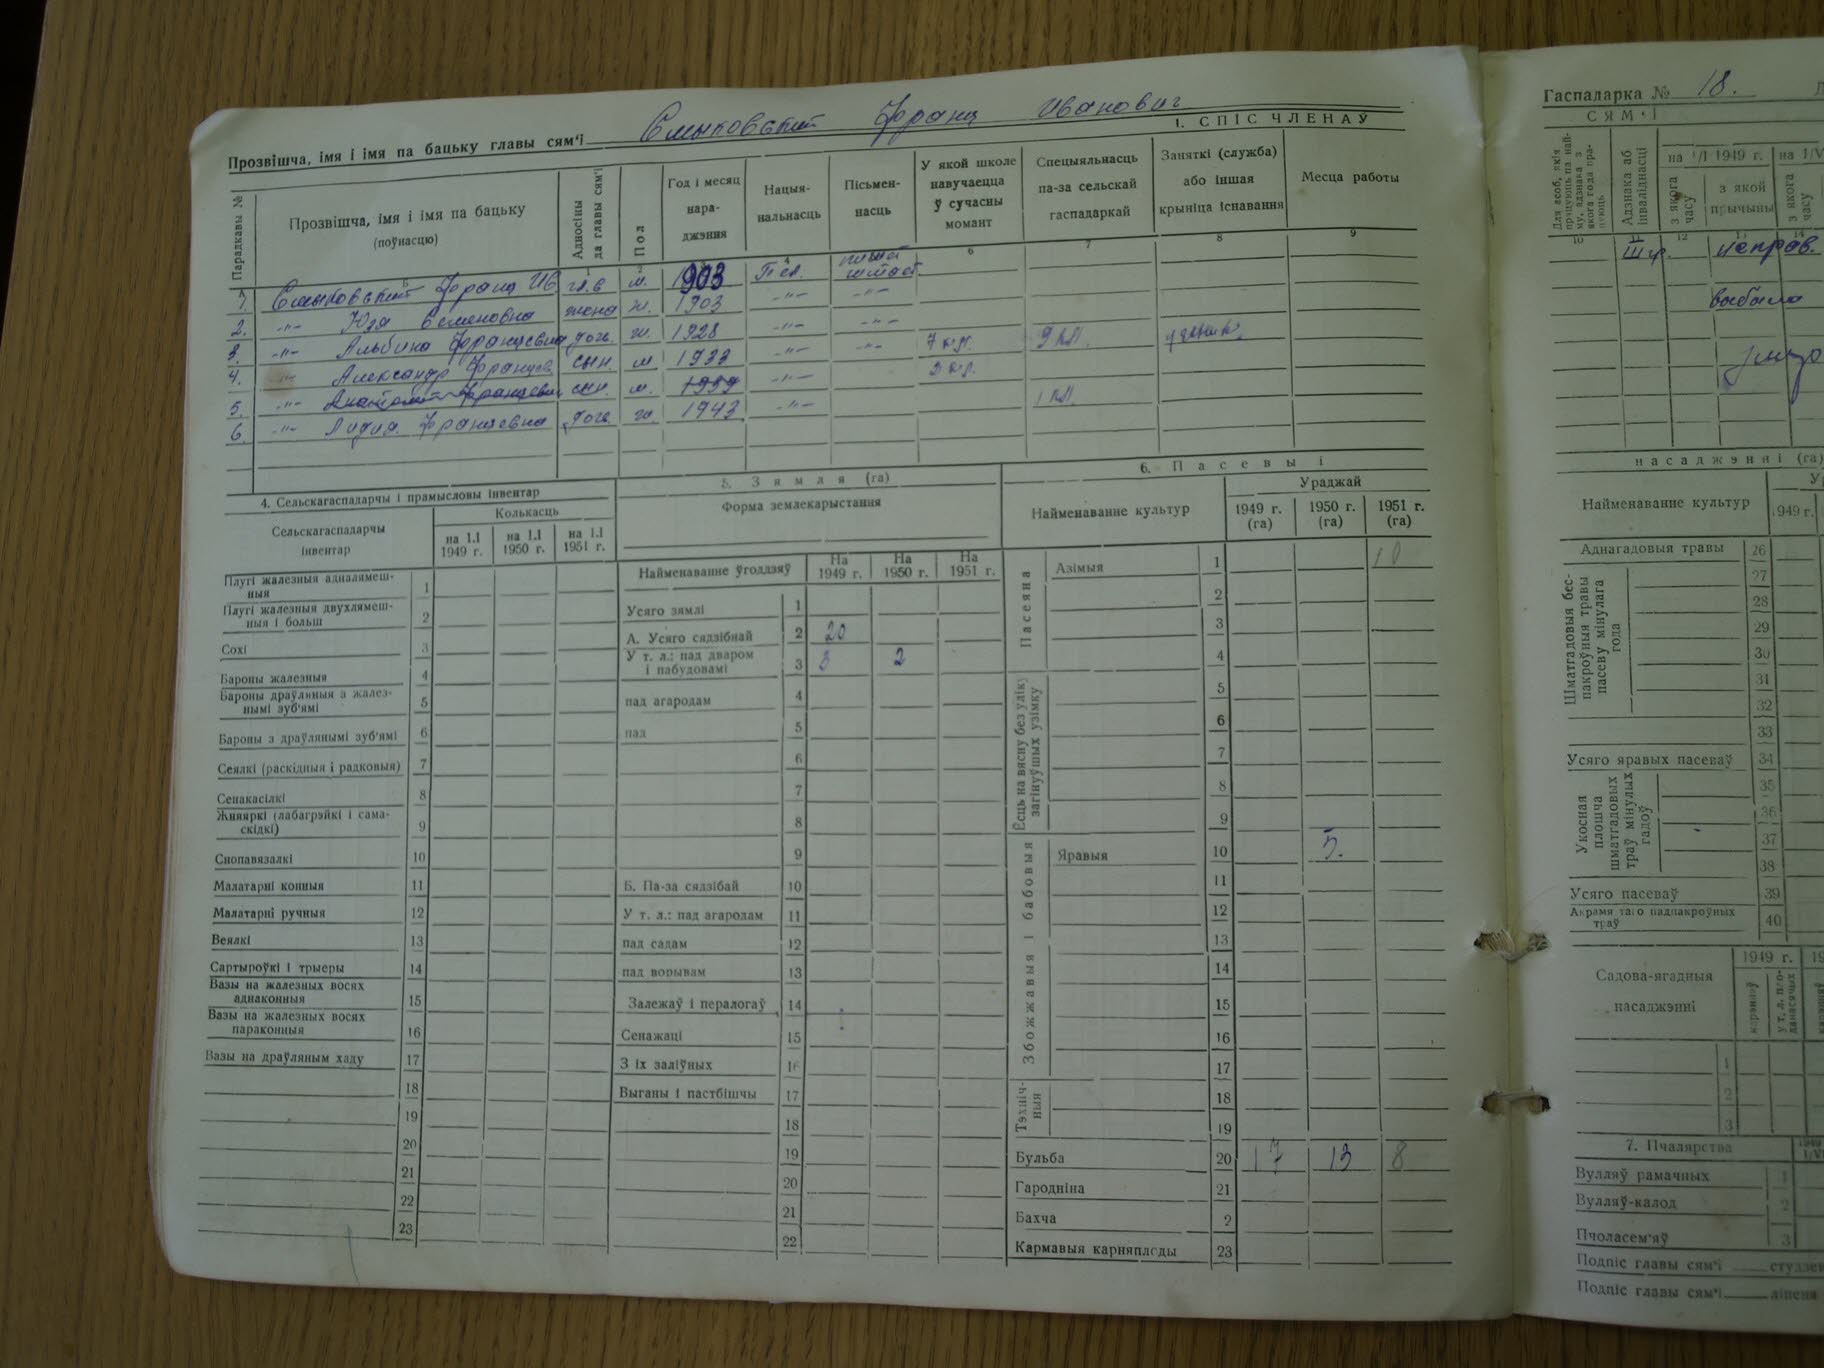 Прозвішча, імя і імя па бацьку главы сям'і Смыковский Франц Иванович
1. СПІС ЧЛЕНАЎ
Парадкавы №
Прозвішча, імя і імя па бацьку (поўнасцю)
Адносіны да главы сям'і
Пол
Год і месяц нара-джэння
Нацыя-нальнасць
Пісьмен-насць
У якой школе навучаецца ў сучасны момант
Спецыяльнасць па-за сельскай гаспадаркай
Заняткі (служба) або іншая крыніца існавання
Месца работы
4 6 7 8 9
1. Смыковский Франц Ив гл.с м. 1903
2. -"- Юзя Семеновна жена ж. 1903 -"- -"-
3. -"- Альбина Францевна доч. ж. 1928 -"- -"- 7 кл. 9 кл.
4. -"- Александр Францев. сын. м 1933 -"- -"- 3 кл.
5. -"- Анатолий Францевич сын. м. 1939 -"- 1 кл
6. -"- Лидия Францевна доч. ж. 1943 -"-
4. Сельскагаспадарчы і прамысловы інвентар
Сельскагаспадарчы інвентар
Колькасць
на 1.I 1949 г. на 1.I 1950 г. на 1.I 1951 г.
Плугі жалезныя аднаlямеш-ныя 1
Плугі жалезныя двухлямеш-ныя і больш 2
Сохі 3
Бароны жалезныя 4
Бароны драўляныя з жалез-нымі зуб'ямі 5
Бароны з драўлянымі зуб'ямі 6
Сеялкі (раскідныя і радковыя) 7
Сенакасілкі 8
Жняяркі (лабагрэйкі і сама-скідкі) 9
Снопавязалкі 10
Малатарні конныя 11
Малатарні ручныя 12
Веялкі 13
Сартыроўкі і трыеры 14
Вазы на жалезных восях аднаконныя 15
Вазы на жалезных восях параконныя 16
Вазы на драўляным хаду 17
18
19
20
21
22
23
5. Зямля (га)
Форма землекарыстання
Найменаванне ўгоддзяў
На 1949 г. На 1950 г. На 1951 г.
Усяго зямлі 1
А. Усяго сядзібнай 2 20
У т. л.: пад дваром і пабудовамі 3 3 2
пад агародам 4
пад 5
6
7
8
9
Б. Па-за сядзібай 10
У т. л.: пад агародам 11
пад садам 12
пад ворывам 13
Залежаў і пералогаў 14
Сенажаці 15
З іх заліўных 16
Выганы і пастбішчы 17
18
19
20
21
22
6. Пасевы і
Найменаванне культур
Ураджай
1949 г. (га) 1950 г. (га) 1951 г. (га)
Пасеяна
Азімыя 1 10
2
3
4
Ёсць на вясну без уліку загінуўшых узімку
5
6
7
8
9
Збожжавыя і бабовыя
Яравыя 10 5.
11
12
13
14
15
16
17
Тэхніч-ныя
18
19
Бульба 20 17 13 8
Гародніна 21
Бахча 2
Кармавыя карняплоды 23
Гаспадарка № 18.
СЯМ'І
Адзнака аб інваліднасці
на 1/I 1949 г. на 1/V
з якога часу
з якой прычыны
з якога часу
10 11 12 13 14
неправ.
выбыла
насаджэнні (га)
Найменаванне культур
1949 г.
Аднагадовыя травы 26
Шматгадовыя бес-пакроўныя травы пасеву мінулага года
27
28
29
30
31
32
33
Усяго яравых пасеваў 34
Укосная плошча шматгадовых траў мінулых гадоў
35
36
37
38
Усяго пасеваў 39
Акрамя таго падпакроўных траў 40
Садова-ягадныя насаджэнні
1949 г.
1
2
3
7. Пчалярства
Вулляў рамачных 1
Вулляў-калод 2
Пчоласем'яў 3
Подпіс главы сям'і студзен
Подпіс главы сям'і ліпеня